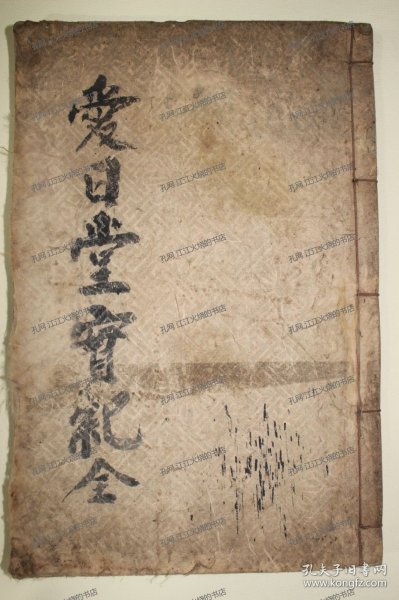 愛日堂實紀全
孔网 江江火烧的书店
孔夫子旧书网
www.kongfz.com